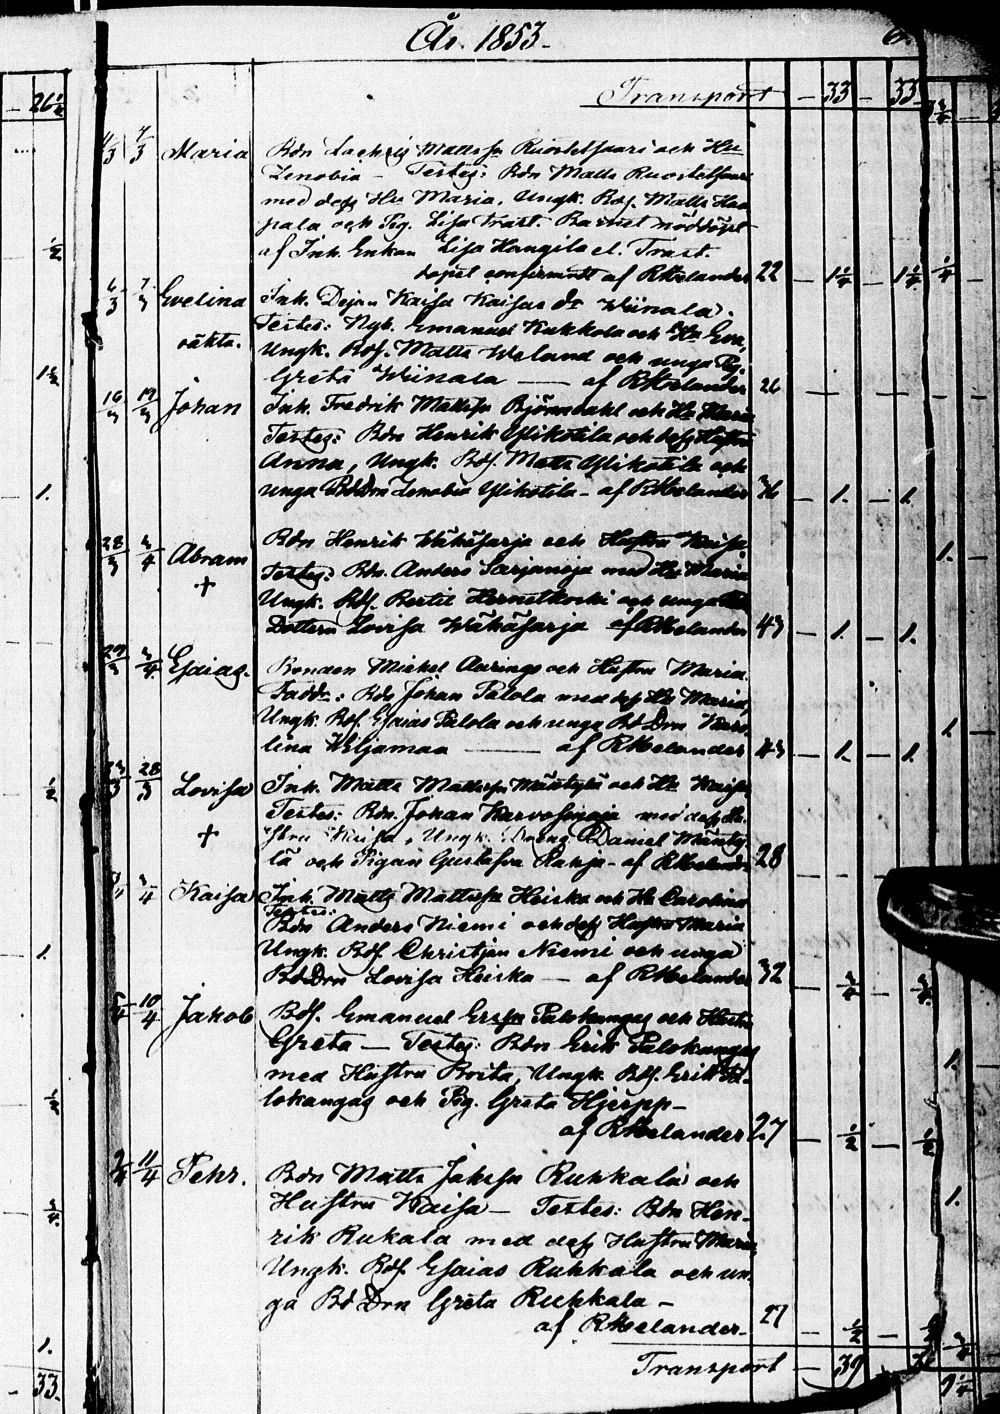 År. 1853.
Transport — 33 — 33
4/3 7/3 Maria Bdn Zachris Mattss Ruostelsaari och Hu
Zenobia — Testes: Bdn Matts Ruostelsaari
med dess Hu Maria, Ungk. Bdss. Matts Haa
pala och Pig. Lisa Trast. Barnet nöddöpt
af Inh. Enkan Lisa Hangila el. Trast.
dopet confirmerdt af RHelander 22 — 1 1/4 — 1 1/4
6/3 7/3 Evelina Inh. Dejan Kaisa Kaisas dr Wiinala.
oäkta. Testes: Nyb. Emanuel Kukkola och Hu Eva,
Ungk. Bdss. Matts Waland och unga Pig.
Greta Wiinala — af RHelander 26 — — — —
16/3 19/3 Johan Inh. Fredrik Mattss Björnndahl och Hu Maria
Testes: Bdn Henrik Ylikotila och dess Hustru
Anna, Ungk. Bdss. Matts Ylikotila och
unga BdDrn Zenobia Ylikotila — af RHelander 36 — 1. — 1.
28/3 3/4 Abram Bdn Henrik Wähäsarja och Hustru Kaisa
+ Testes: Bdn. Anders Sarjanoja med Hu Maria
Ungk. Bdss. Bertil Hernetkoski och unga
Dottern Lovisa Wähäsarja af RHelander 43 — 1. — 1.
29/3 3/4 Esaias. Bonden Michel Aurings och Hustru Maria.
Faddr.: Bdn Johan Palola med dess Hu Maria,
Ungk. Bdss. Esaias Palola och unga Bd Drn Karo
lina Wiljamaa — af RHelander 43 — 1. — 1.
23/3 28/3 Lovisa Inh. Matts Mattss Mäntylä och Hu Kaisa
+ Testes: Bdn. Johan Karvosenoja med dess Hu
stru Kaisa, Ungk. Dreng. Daniel Mänty
lä och Pigan Gustafva Rahja — af RHelander 28 — — — —
3/4 Kaisa Inh. Matts Mattss Heiska och Hu Carolina
Testes:
Bdn Anders Niemi och dess Hustru Maria
Ungk. Bdss Christjan Niemi och unga
BdDrn Lovisa Heiska — af RHelander 32 — 3/4 — 3/4.
5/4 10/4 Jakob Bdss. Emanuel Erss Palokangas och Hustru
Greta — Testes: Bdn Erik Palokangas
med Hustru Brita, Ungk. Bdss. Erik Pa-
lokangas och Pig. Greta Hjerpp —
af RHelander 27 — 1/2 — 1/2
9/4 11/4 Pehr. Bdn Matts Jakss Ruhkala och
Hustru Kaisa — Testes: Bdn Hen-
rik Rukala med dess Hustru Maria
Ungk. Bdss. Esaias Ruhkala och un-
ga Bd Drn Greta Ruhkala —
af RHelander. 27 — 1/2 — 1/2
Transport — 39